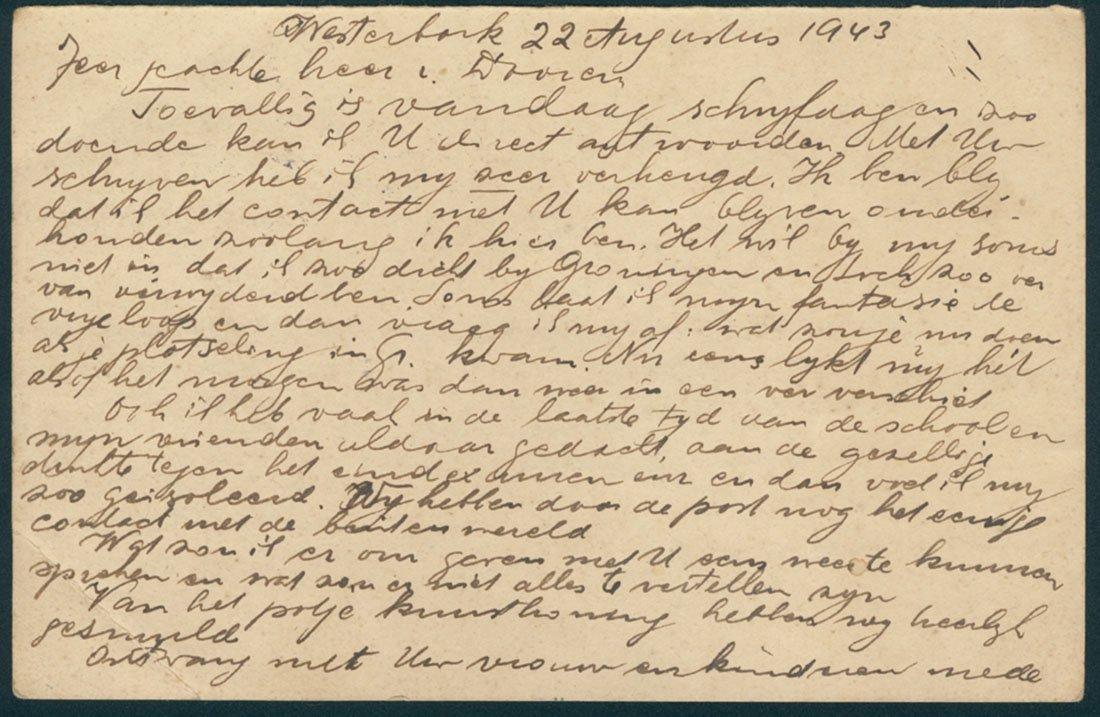 Westerbork 22 Augustus 1943
Zeer geachte heer v. Dooren
Toevallig is vandaag schryfdag en zoo
doende kan ik U direct antwoorden Met Uw
schryven heb ik my zeer verheugd. Ik ben bly
dat ik het contact met U kan blyven onder-
houden zoolang ik hier ben. Het wil by my soms
niet in dat ik zoo dicht by Groningen en toch zoo ver
van verwyderd ben Soms laat ik myn fantasie de
vrye loop en dan vraag ik my af: wat zou je nu doen
als je plotseling in Gr. kwam. Nu eens lykt my het
alsof het morgen was dan weer in een ver verschiet
Och ik heb vaak in de laatste tyd van de school en
myn vrienden aldaar gedacht, aan de gezellige
drukte tegen het eindexamen en en dan voel ik my
zoo geïsoleerd. Wy hebben door de post nog het eenige
contact met de buitenwereld
Wat zou ik er om geven met U eens weer te kunnen
spreken en wat zou er niet alles te vertellen zyn
Van het potje kunsthoning hebben wy heerlyk
gesmuld
Ontvang met Uw vrouw en kinderen mede